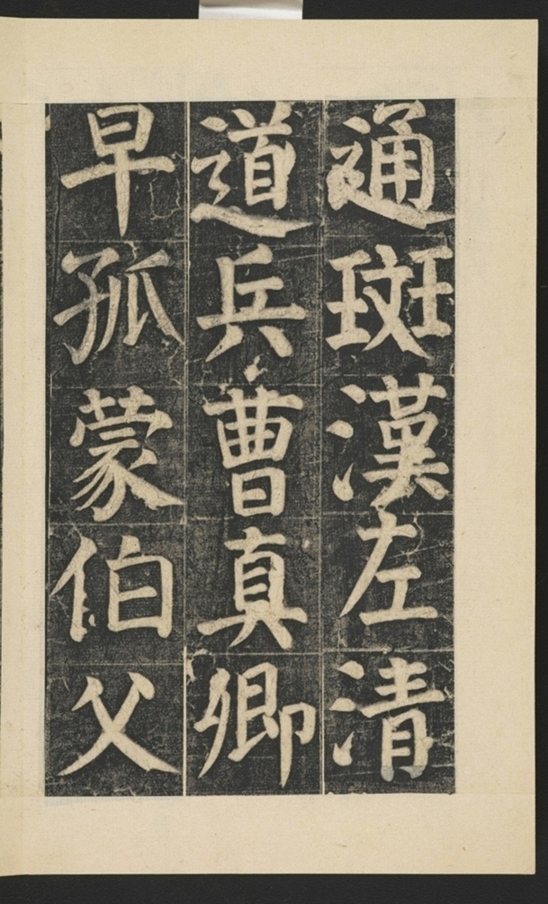 通斑漢左清
道兵曹真卿
早孤蒙伯父